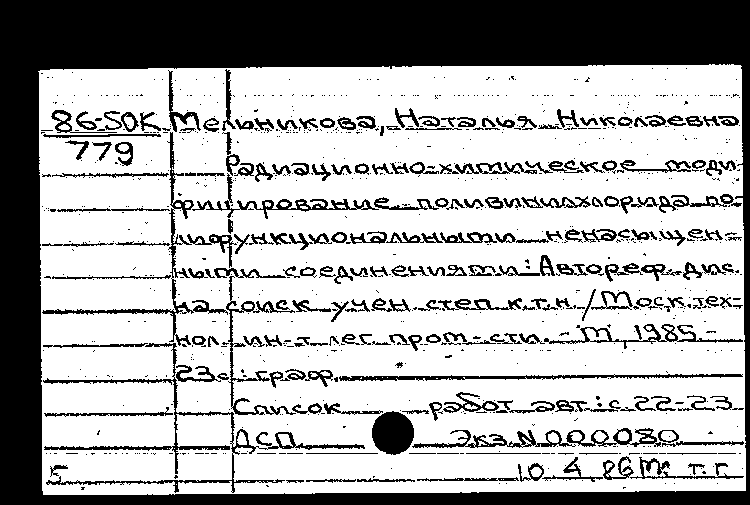 86-50К Мельникова, Наталья Николаевна
779
Радиационно-химическое моди
фицирование поливинилхлорида по-
лифункциональными ненасыщен-
ными соединениями: Автореф. дис.
на соиск учен степ к.т.н. / Моск. тех-
нол. ин-т лег. пром-сти. - М, 1985. -
23с.: граф.
Список работ авт: с. 22-23
ДСП. Экз. N 000080
5 10 4. 86 т. г.